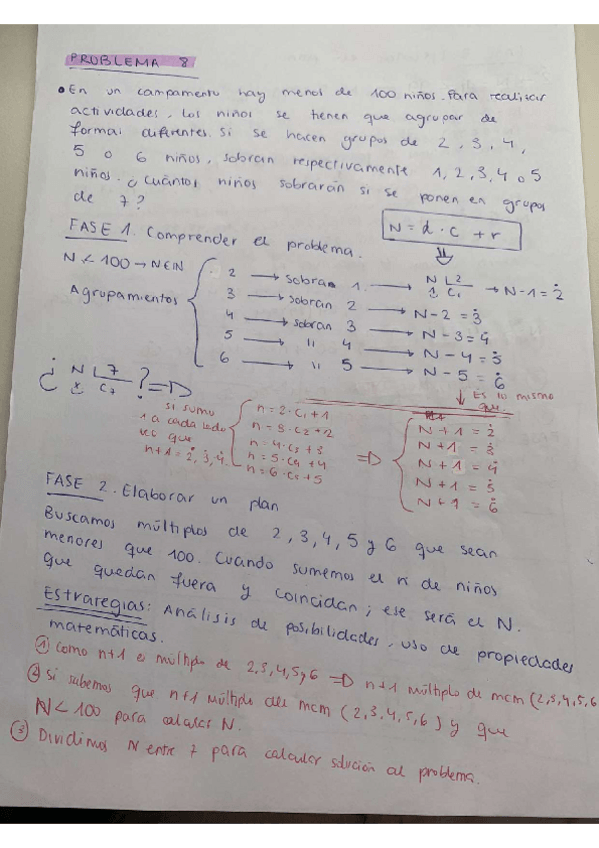 PROBLEMA 8
• En un campamento hay menos de 100 niños. Para realizar
actividades, los niños se tienen que agrupar de
formas diferentes. Si se hacen grupos de 2, 3, 4,
5 o 6 niños, sobran respectivamente 1, 2, 3, 4 o 5
niños. ¿Cuántos niños sobrarán si se ponen en grupos
de 7?
N = d · c + r
FASE 1. Comprender el problema.
N < 100 → N∈ℕ
Agrupamientos
2 → sobran 1. N |2 1 C₁ → N-1 = 2̇
3 → sobran 2 → N-2 = 3̇
4 → sobran 3 → N-3 = 4̇
5 → " 4 → N-4 = 5̇
6 → " 5 → N-5 = 6̇
¿ N |7 x C₇ ? ⇒
Es lo mismo
que.
si sumo
1 a cada lado
veo que
n+1 = 2̇, 3̇, 4̇.
n = 2·c₁ + 1
n = 3·c₂ + 2
n = 4·c₃ + 3
n = 5·c₄ + 4
n = 6·c₅ + 5
⇒
N + 1 = 2̇
N + 1 = 3̇
N + 1 = 4̇
N + 1 = 5̇
N + 1 = 6̇
FASE 2. Elaborar un plan
Buscamos múltiplos de 2, 3, 4, 5 y 6 que sean
menores que 100. Cuando sumemos el nº de niños
que quedan fuera y coincidan, ese será el N.
Estraregias: Análisis de posibilidades, uso de propiedades
matemáticas.
① como n+1 es múltiplo de 2,3,4,5,6 ⇒ n+1 múltiplo de mcm (2,3,4,5,6
② Si sabemos que n+1 múltiplo del mcm (2,3,4,5,6) y que
N < 100 para calcular N.
③ Dividimos N entre 7 para calcular solución al problema.